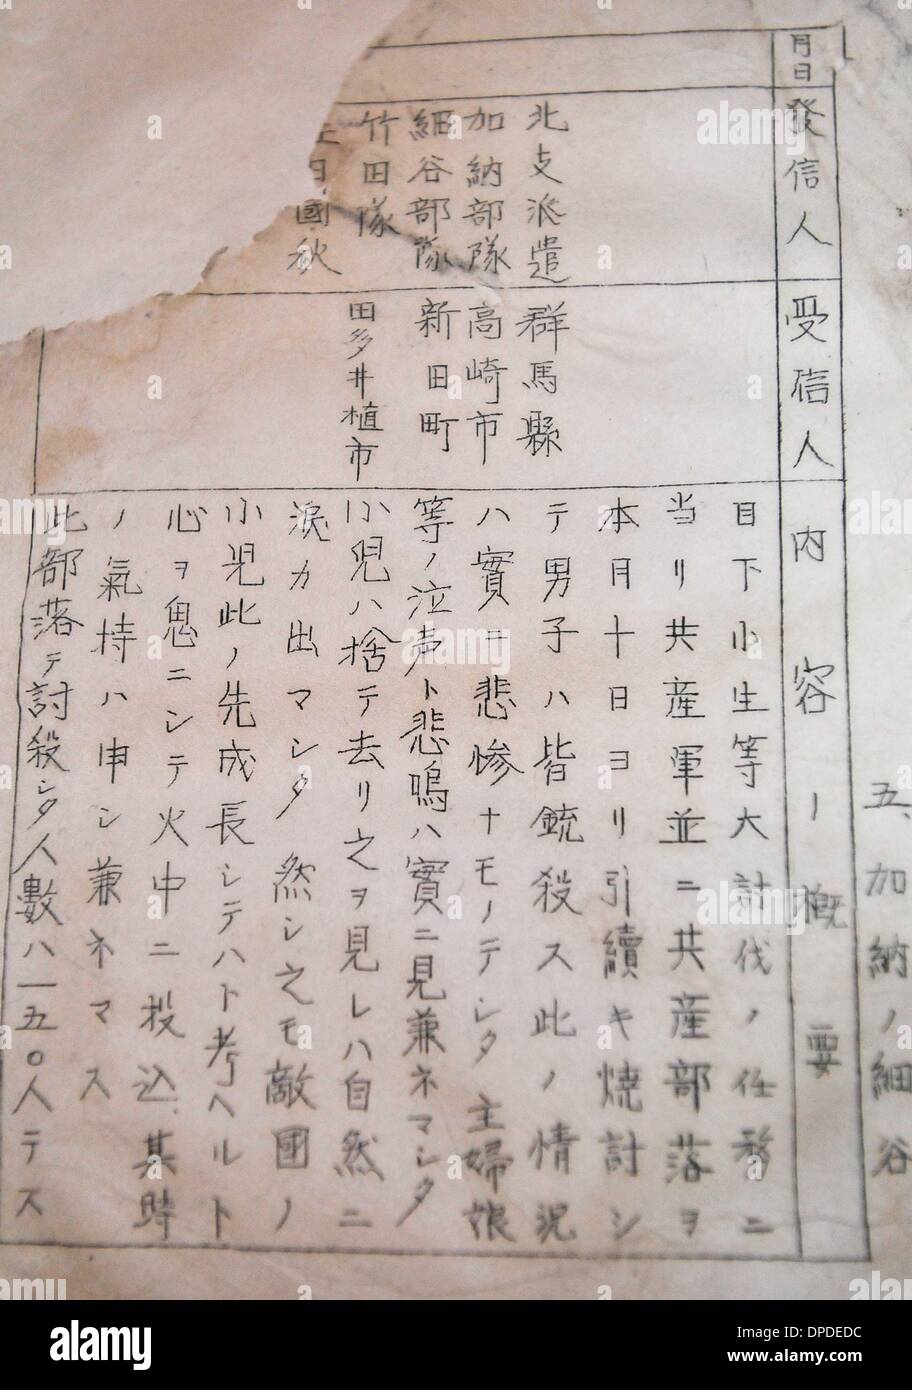 五、加納ノ細谷
月日
發信人
受信人
内容ノ概要
北支派遣
加納部隊
細谷部隊
竹田隊
田國秋
群馬縣
高崎市
新田町
田多井植市
目下小生等大討伐ノ任務ニ
当リ共産軍並ニ共産部落ヲ
本月十日ヨリ引續キ焼討シ
テ男子ハ皆銃殺ス此ノ情況
ハ實ニ悲惨ナモノテシタ主婦娘
等ノ泣声ト悲鳴ハ實ニ見兼ネマシタ
小児ハ捨テ去リ之ヲ見レハ自然ニ
涙カ出マシタ 然シ之モ敵國ノ
小児此ノ先成長シテハト考ヘルト
心ヲ鬼ニシテ火中ニ投込、其時
ノ氣持ハ申シ兼ネマス
此部落テ討殺シタ人數ハ一五〇人テス
alamy
Image ID: DPDEDC
www.alamy.com